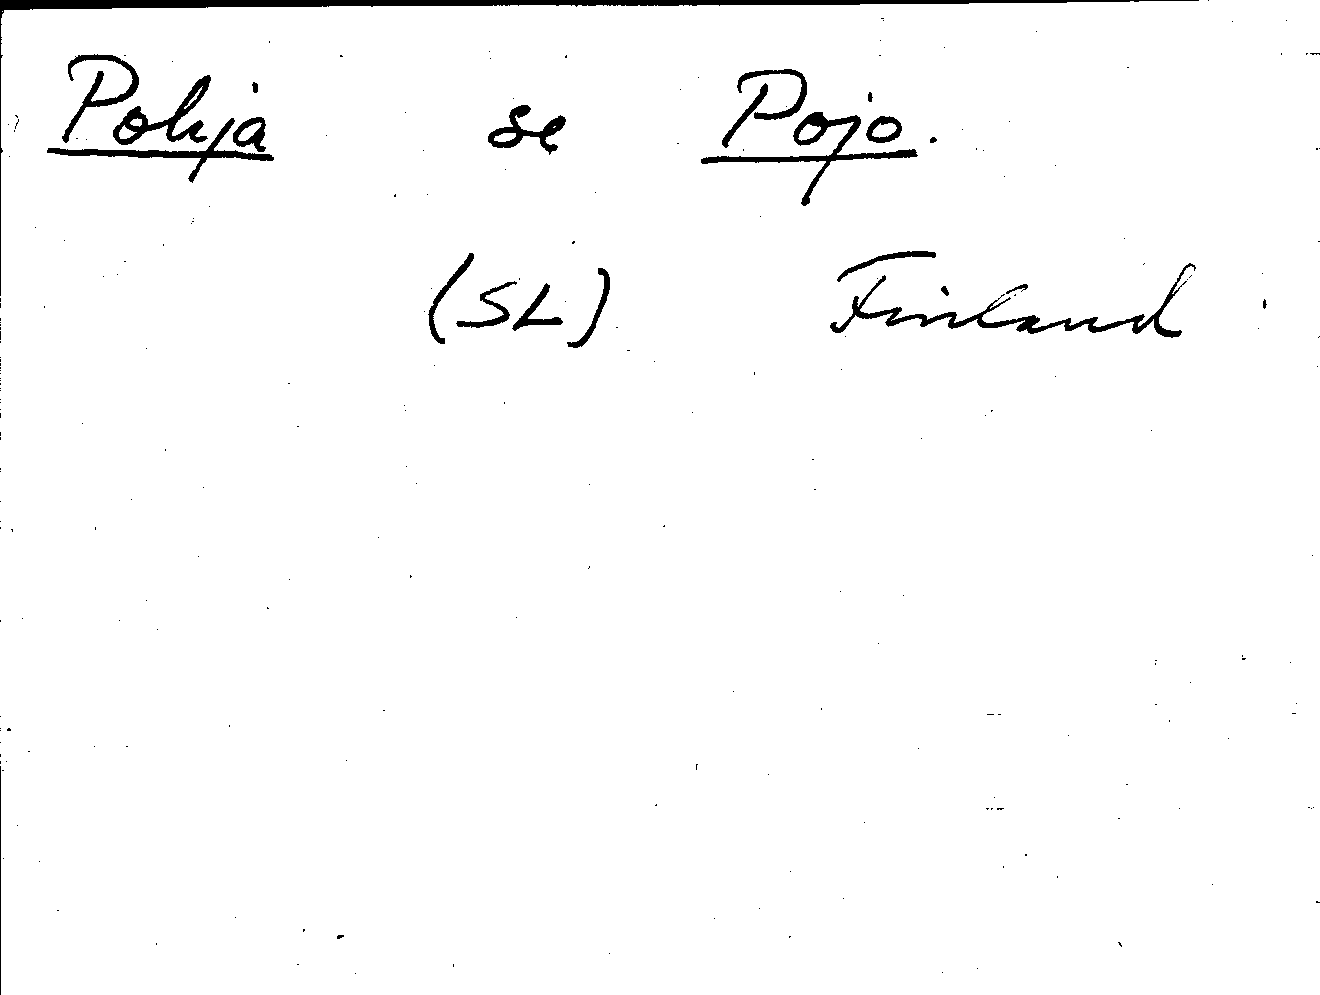 Pohja se Pojo.
(SL) Finland